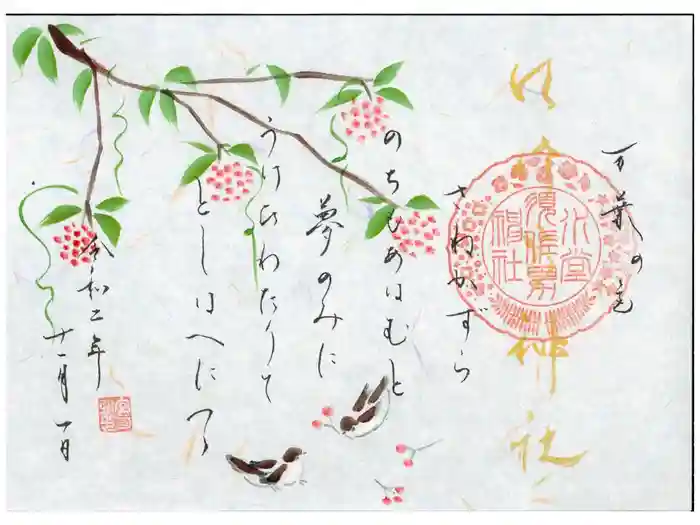 万葉の花
さねかずら
のちもあはむと
夢のみに
うけひわたりて
としはへにつつ
令和二年
十一月一日
神社